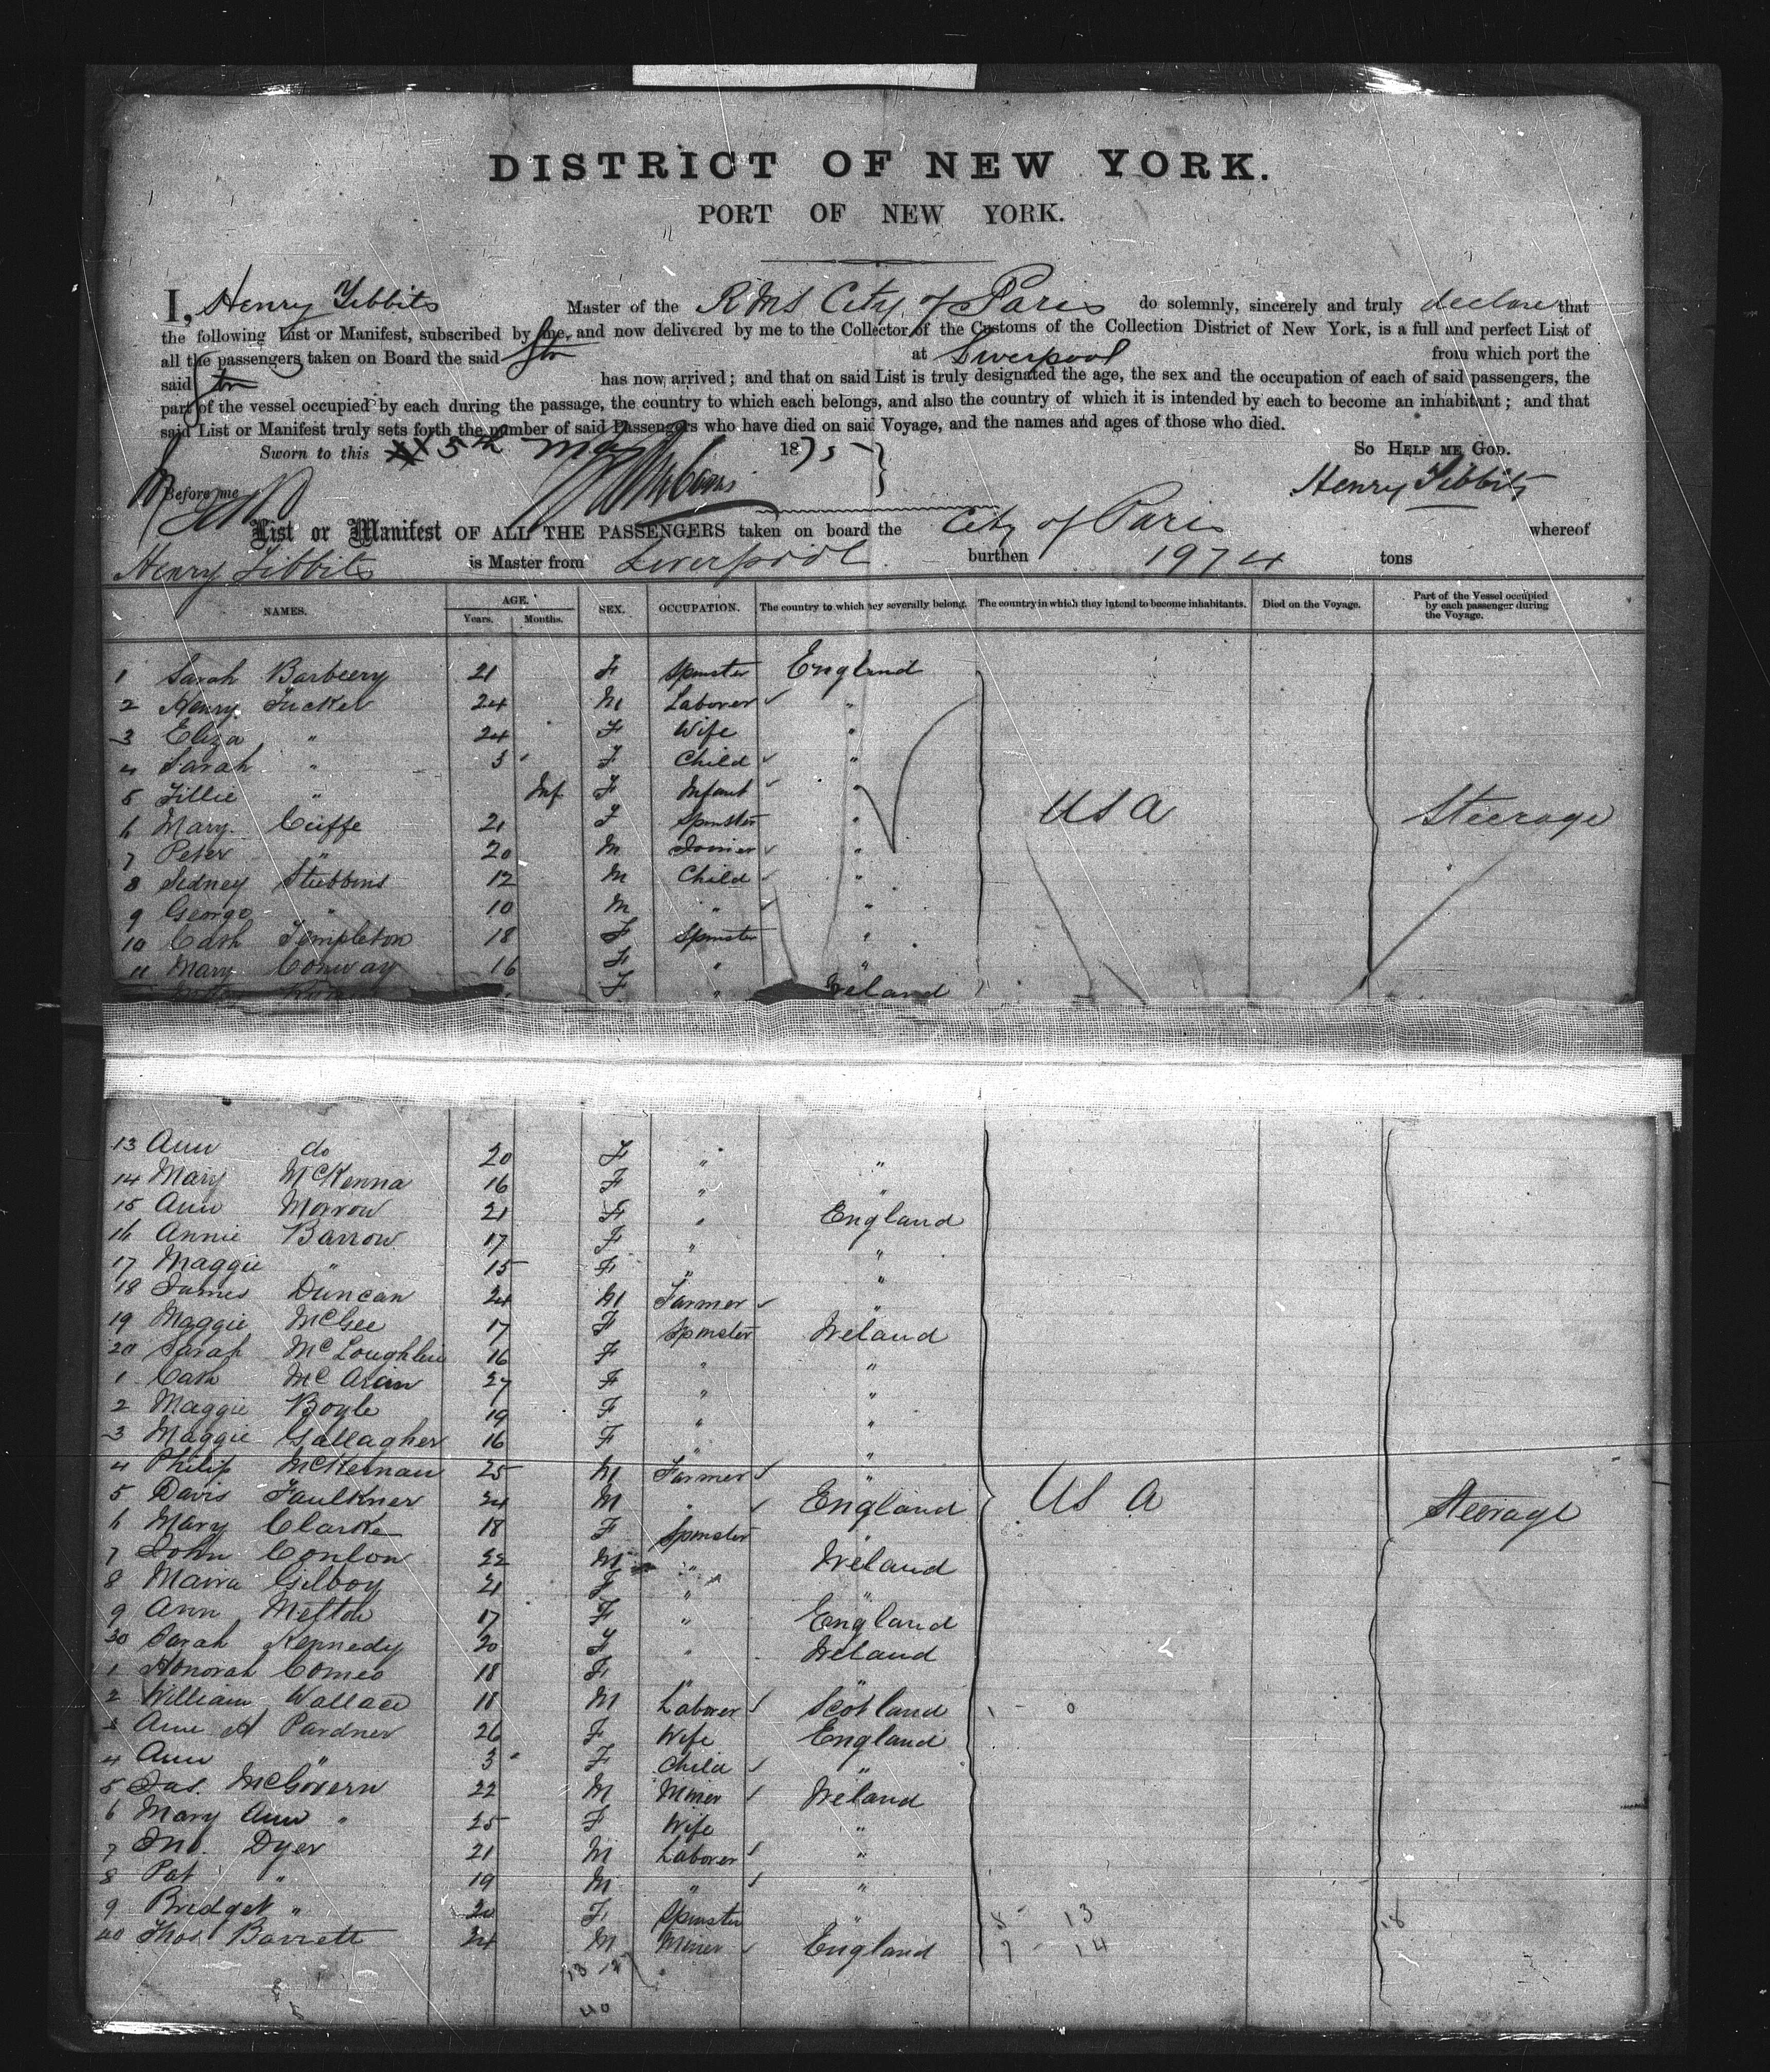 DISTRICT OF NEW YORK.
PORT OF NEW YORK.
I, Henry Tibbits Master of the RMS City of Paris do solemnly, sincerely and truly declare that
the following List or Manifest, subscribed by me, and now delivered by me to the Collector of the Customs of the Collection District of New York, is a full and perfect List of
all the passengers taken on Board the said Str at Liverpool from which port the
said Str has now arrived; and that on said List is truly designated the age, the sex and the occupation of each of said passengers, the
part of the vessel occupied by each during the passage, the country to which each belongs, and also the country of which it is intended by each to become an inhabitant; and that
said List or Manifest truly sets forth the number of said Passengers who have died on said Voyage, and the names and ages of those who died.
Sworn to this 5th May 1875 So Help me God.
Before me Henry Tibbits
List or Manifest OF ALL THE PASSENGERS taken on board the City of Paris whereof
Henry Tibbits is Master from Liverpool burthen 1974 tons
NAMES. AGE. Years. Months. SEX. OCCUPATION. The country to which they severally belong. The country in which they intend to become inhabitants. Died on the Voyage. Part of the Vessel occupied by each passenger during the Voyage.
1 Sarah Barbeery 21 F Spinster England
2 Henry Tucker 24 M Laborer "
3 Eliza " 24 F Wife "
4 Sarah " 3 F Child "
5 Tillie " Inf F Infant "
6 Mary Cuffe 21 F Spinster " USA Steerage
7 Peter " 20 M Joiner "
8 Sidney Stubbins 12 M Child "
9 George " 10 M " "
10 Cath Templeton 18 F Spinster "
11 Mary Conway 16 F " "
F " Ireland
13 Ann do 20 F " "
14 Mary McKenna 16 F " "
15 Ann Morrow 21 F " England
16 Annie Barrow 17 F " "
17 Maggie " 15 F " "
18 James Duncan 24 M Farmer "
19 Maggie McGee 17 F Spinster Ireland
20 Sarah McLoughlin 16 F " "
1 Cath 27 F " "
2 Maggie Boyle 19 F " "
3 Maggie Gallagher 16 F " "
4 Philip McKernan 25 M Farmer "
5 Davis Faulkner 24 M " England USA Steerage
6 Mary Clarke 18 F Spinster
7 John Conlon 22 M " Ireland
8 Maria Gilboy 21 F " "
9 Ann 17 F " England
30 Sarah Kennedy 20 F " Ireland
1 Honorah 18 F " "
2 William Wallace 18 M Laborer Scotland
3 Ann A Pardner 26 F Wife England
4 Ann " 3 F Child "
5 Jas. McGovern 22 M Miner Ireland
6 Mary Ann " 25 F Wife "
7 Jno. Dyer 21 M Laborer "
8 Pat " 19 M " "
9 Bridget " 20 F Spinster " 8 - 13 18
40 Thos. Barrett 24 M Miner England 7 - 14
13 - 27
40